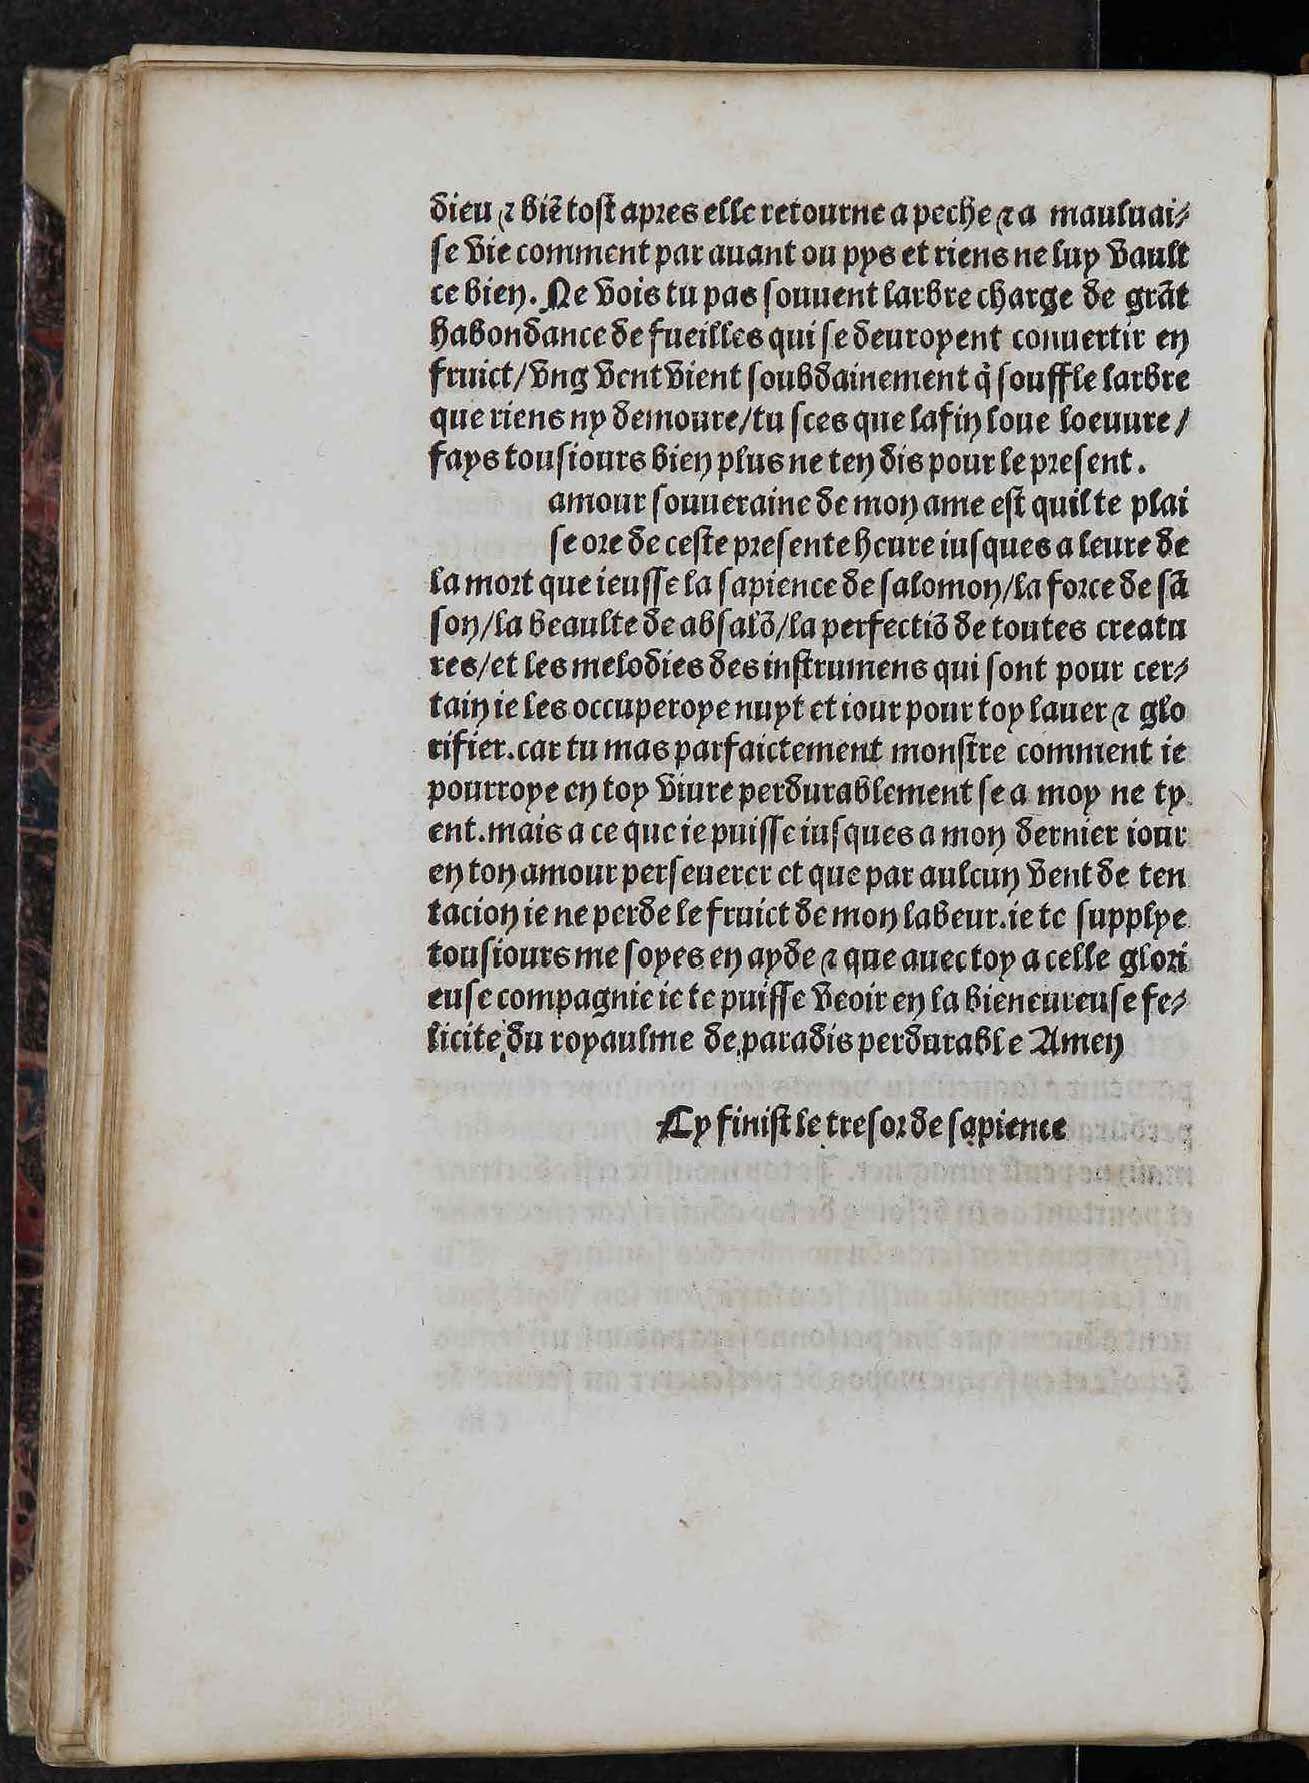 dieu ⁊ biẽ tost apres elle retourne a peche ⁊ a mauluai⸗
se vie comment par auant ou pys et riens ne luy vault
ce bien. Ne vois tu pas souuent larbre charge de grãt
habondance de fueilles qui se deuroyent conuertir en
fruict/vng vent vient soubdainement q̃ souffle larbre
que riens ny demoure/tu sces que lafin loue loeuure/
fays tousiours bien plus ne ten dis pour le present.
amour souueraine de mon ame est quil te plai
se ore de ceste presente heure iusques a leure de
la mort que ieusse la sapience de salomon/la force de sã
son/la beaulte de absalõ/la perfectiõ de toutes creatu
res/et les melodies des instrumens qui sont pour cer⸗
tain ie les occuperoye nuyt et iour pour toy lauer ⁊ glo
rifier.car tu mas parfaictement monstre comment ie
pourroye en toy viure perdurablement se a moy ne ty
ent.mais a ce que ie puisse iusques a mon dernier iour
en ton amour perseuerer et que par aulcun vent de ten
tacion ie ne perde le fruict de mon labeur.ie te supplye
tousiours me soyes en ayde ⁊ que auec toy a celle glori
euse compagnie ie te puisse veoir en la bieneureuse fe⸗
licite du royaulme de paradis perdurable Amen
Cy finist le tresor de sapience